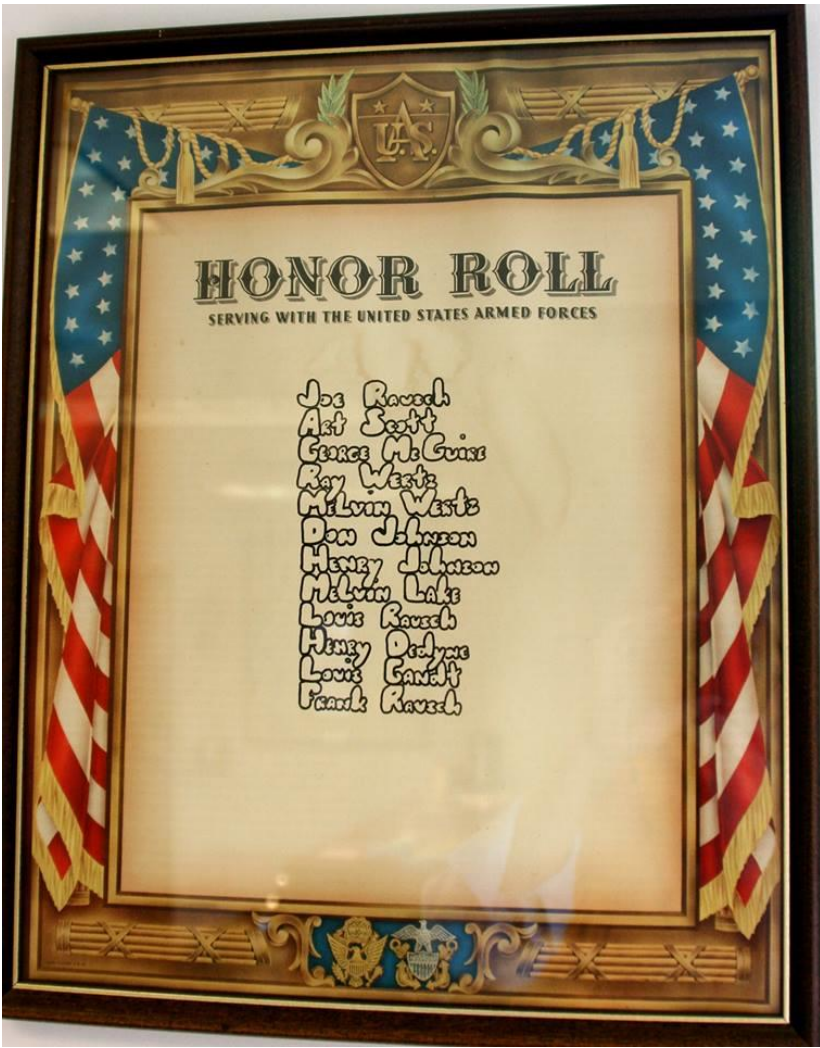 U.S.A.
HONOR ROLL
SERVING WITH THE UNITED STATES ARMED FORCES
Joe Rausch
Art Scott
George McGuire
Ray Wertz
Melvin Wertz
Don Johnson
Henry Johnson
Melvin Lake
Louis Rausch
Henry Dedyne
Louis Gandt
Frank Rausch